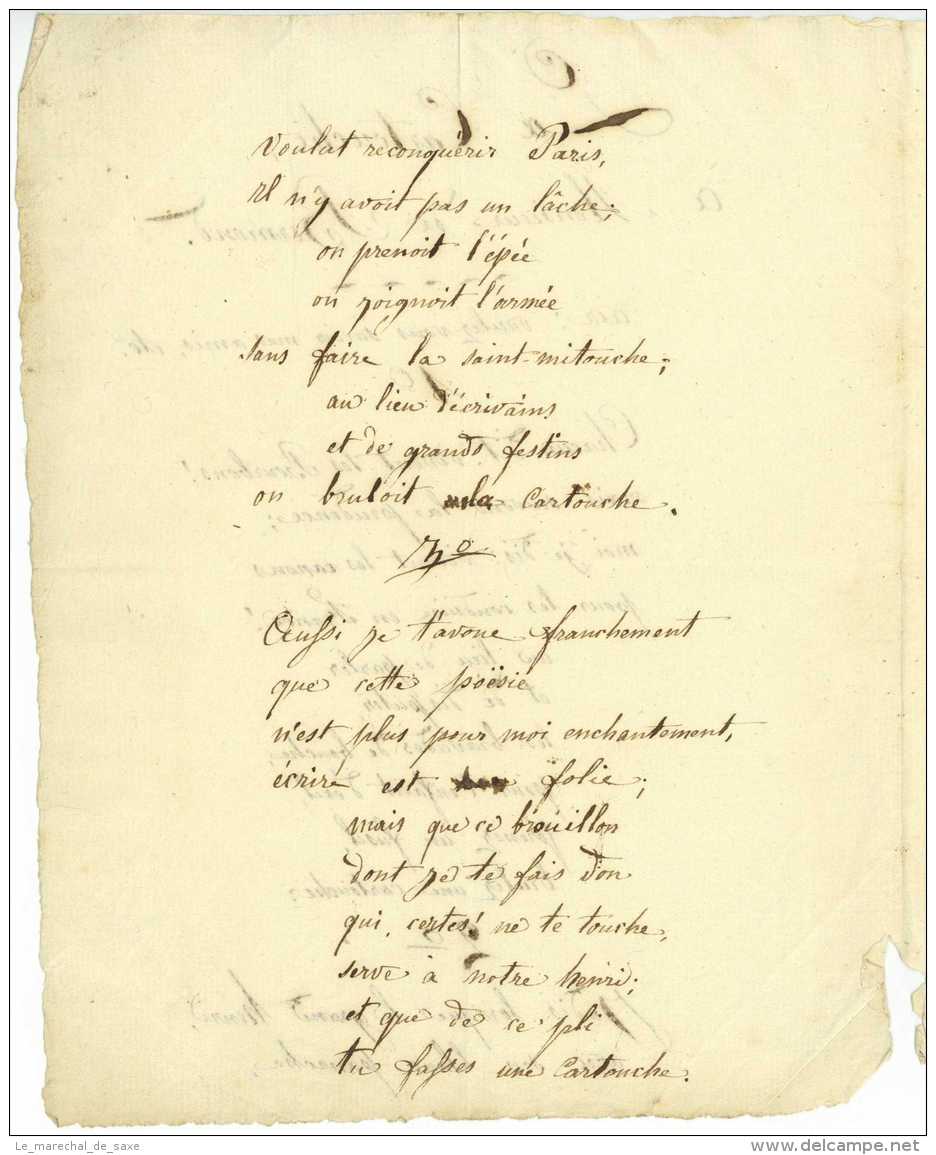 voulut reconquérir Paris,
il n'y avoit pas un lâche;
on prenoit l'épée
on joignoit l'armée
sans faire la saint-mitouche;
au lieu d'écrivains
et de grands festins
on bruloit la cartouche.
3º
Aussi je t'avoue franchement
que cette poësie
n'est plus pour moi enchantement,
écrire est folie;
mais que ce brouillon
dont je te fais don
qui, certes! ne te touche,
serve à notre henri;
et que de ce pli
tu fasses une cartouche.
Le_marechal_de_saxe
www.delcampe.net